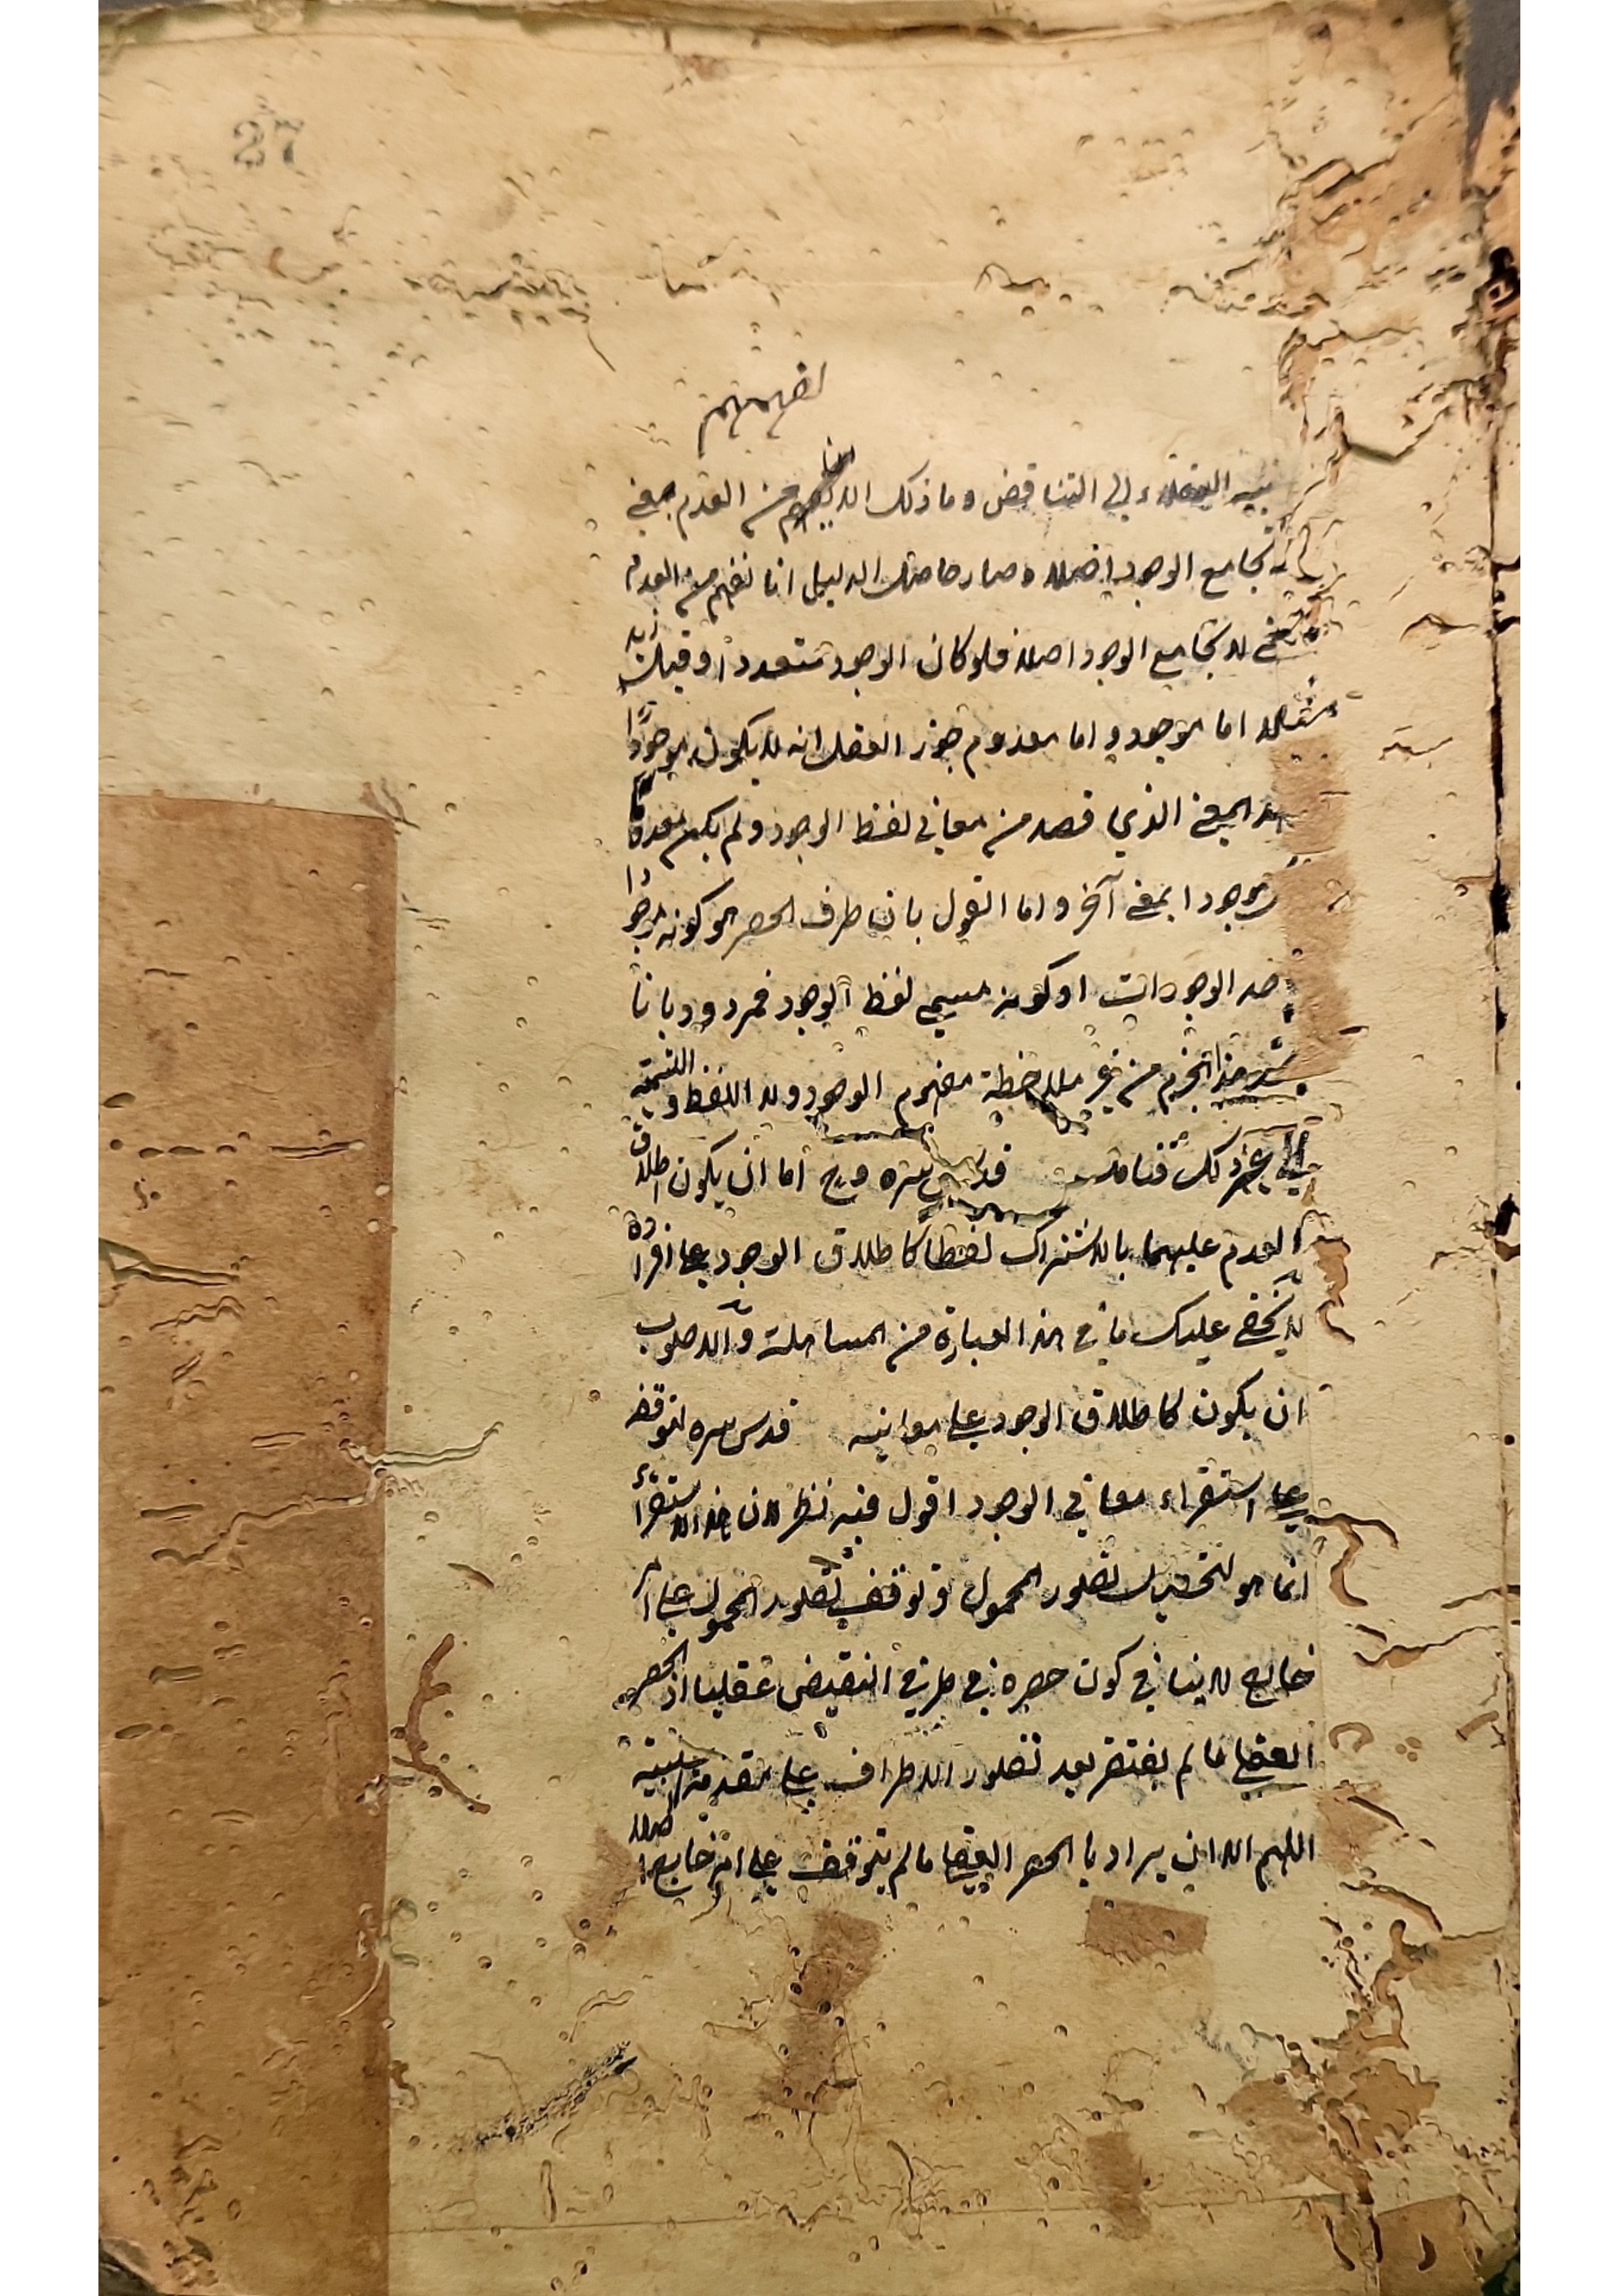 27
لفهمهم
العقلاء الى التناقض وما ذلك الا لانا نفهم من العدم معنى
يجامع الوجود اصلا وصار حاصل الدليل انا نفهم من العدم
معنى لا يجامع الوجود اصلا فلو كان الوجود متعددا وقيل زيد
مثلا اما موجود واما معدوم جوز العقل انه لا يكون موجودا
المعنى الذي قصد من معاني لفظ الوجود ولم يكن معدوما
موجودا بمعنى آخر واما القول بان طرف الحصر هو كونه موجودا
الوجودات او كونه مسمى لفظ الوجود فمردود بانا
هذا الجزم من غير ملاحظة مفهوم الوجود ولا اللفظ والتسمية
الى غير ذلك فتامل قدس سره وح اما ان يكون اطلاق
العدم عليهما بالاشتراك لفظا كاطلاق الوجود على افراده
لا يخفى عليك ما في هذا العبارة من المساهلة والاصوب
ان يكون كاطلاق الوجود على معانيه قدس سره لتوقفه
على استقراء معاني الوجود اقول فيه نظر لان هذا الاستقراء
انما هو لتحصيل تصور المحمول وتوقف تصور المحمول على امر
خارج لا ينافي كون حصره في طرفي النقيض عقليا اذ الحصر
العقلي ما لم يفتقر بعد تصور الاطراف على مقدمة
اللهم الا ان يراد بالحصر العقلي ما لم يتوقف على امر خارج اصلا